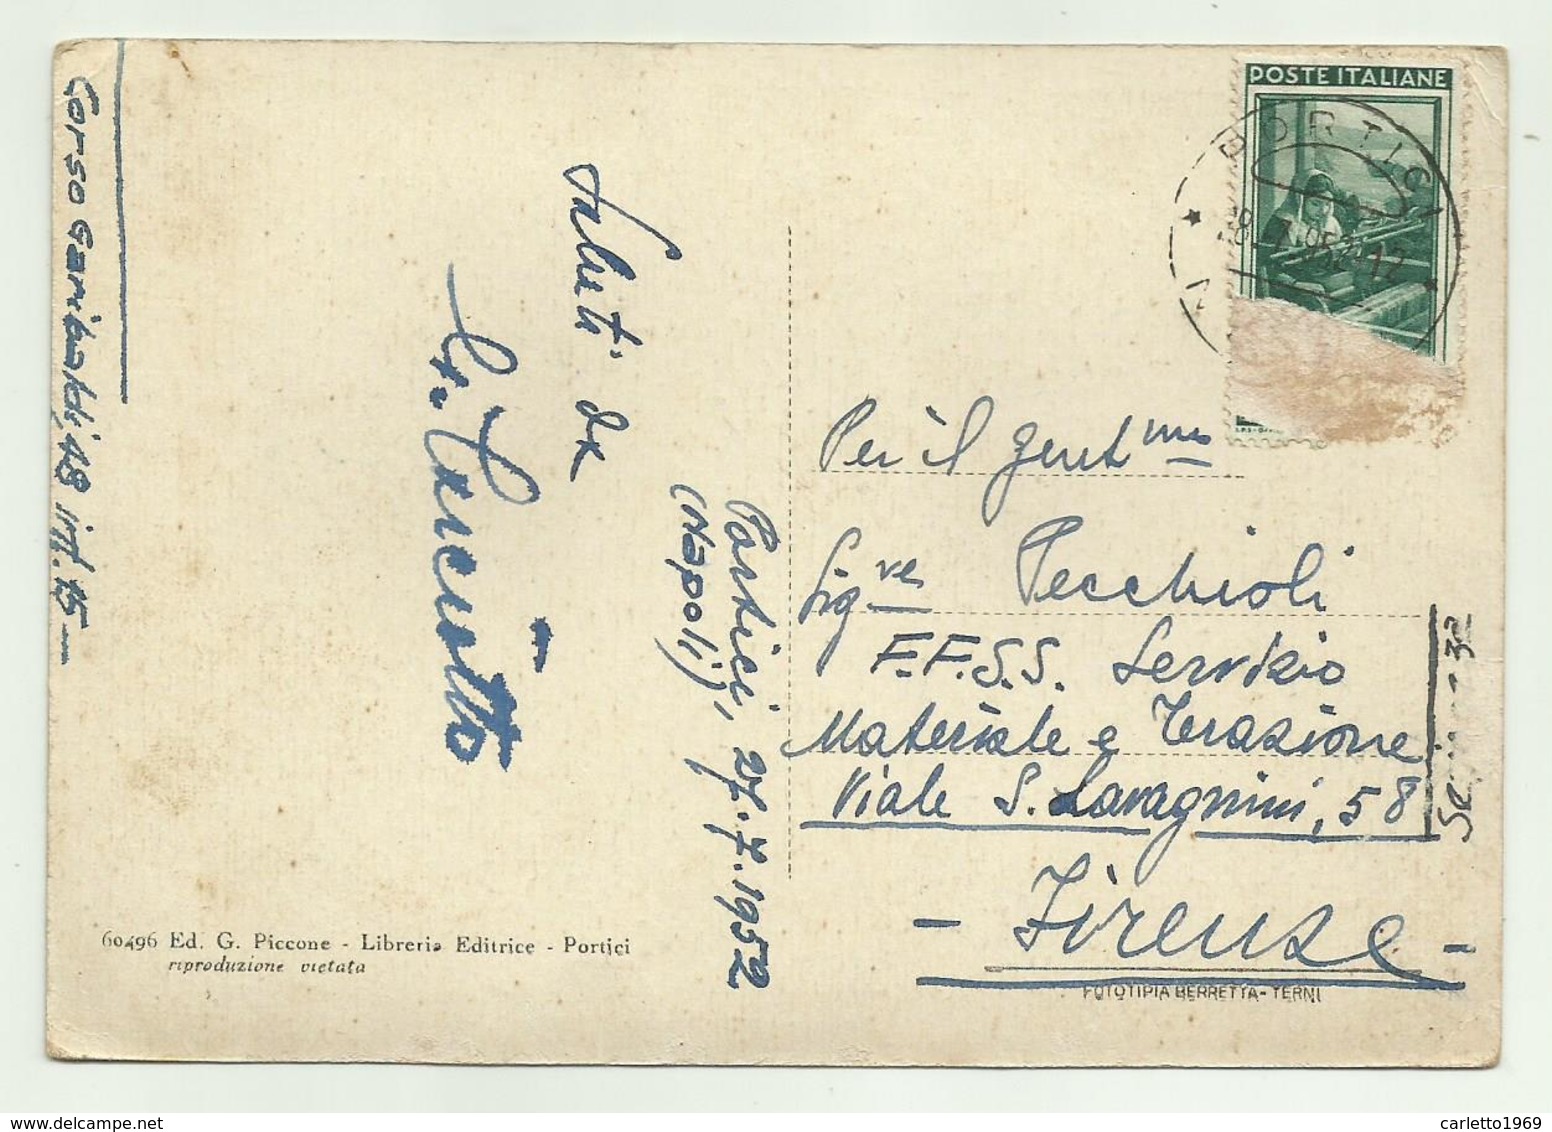 Corso Garibaldi, 48 int. 15 —
Saluti da
Portici, 27.7.1952
(Napoli)
60496 Ed. G. Piccone - Libreria Editrice - Portici
riproduzione vietata
POSTE ITALIANE
PORTICI
Per il gent.mo
Sig.re Pecchioli
F.F.S.S. Servizio
Materiale e Trazione
Viale S. Lavagnini, 58
- Firenze -
FOTOTIPIA BERRETTA - TERNI
carletto1969